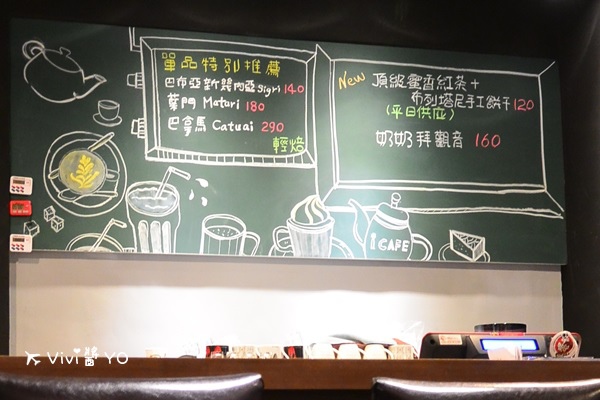 單品特別推薦
巴布亞新幾內亞 Sigri 140
葉門 Matari 180
巴拿馬 Catuai 290
輕焙
New 頂級蜜香紅茶+
布列塔尼手工餅干 120
(平日供應)
奶奶拜觀音 160
i CAFE
ViVi醬YO